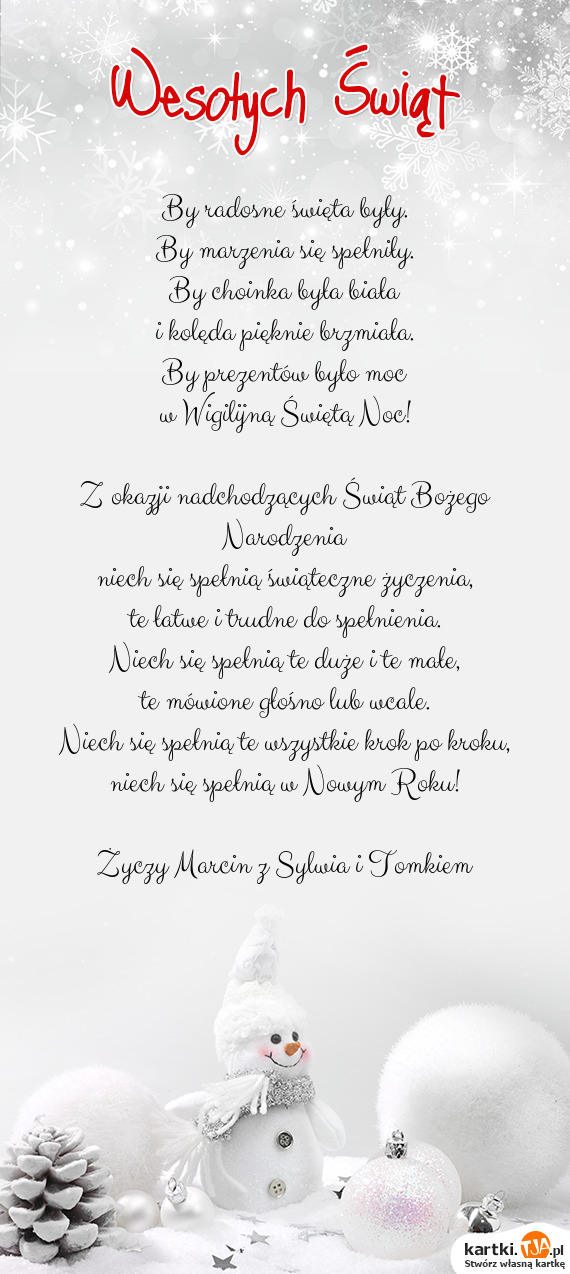 Wesołych Świąt
By radosne święta były.
By marzenia się spełniły.
By choinka była biała
i kolęda pięknie brzmiała.
By prezentów było moc
w Wigilijną Świętą Noc!
Z okazji nadchodzących Świąt Bożego
Narodzenia
niech się spełnią świąteczne życzenia,
te łatwe i trudne do spełnienia.
Niech się spełnią te duże i te małe,
te mówione głośno lub wcale.
Niech się spełnią te wszystkie krok po kroku,
niech się spełnią w Nowym Roku!
Życzy Marcin z Sylwia i Tomkiem
kartki.TJA.pl
Stwórz własną kartkę